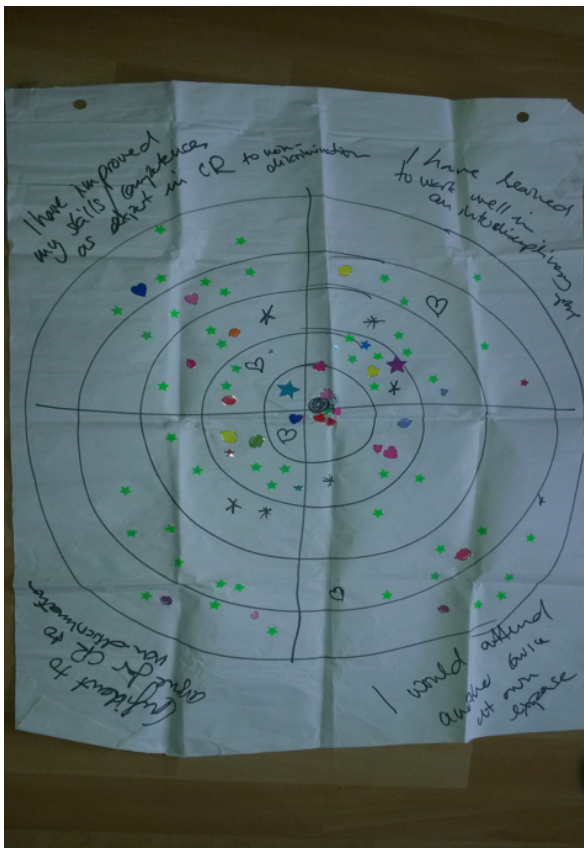 I have improved
my skills/competences
as expert in CR to non-
discrimination
I have learned
to work well in
an interdisciplinary
Confident to
argue for CR to
non-discrimination
I would attend
another
at own
expense